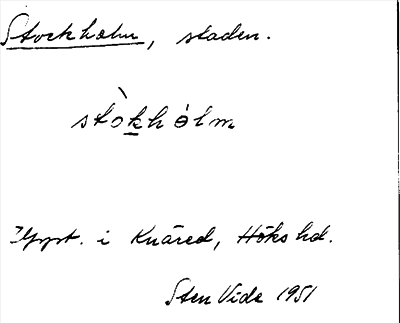 Stockholm, staden.
stòkhólm
Uppt. i Knäred, Höks hd.
Sten Vide 1951